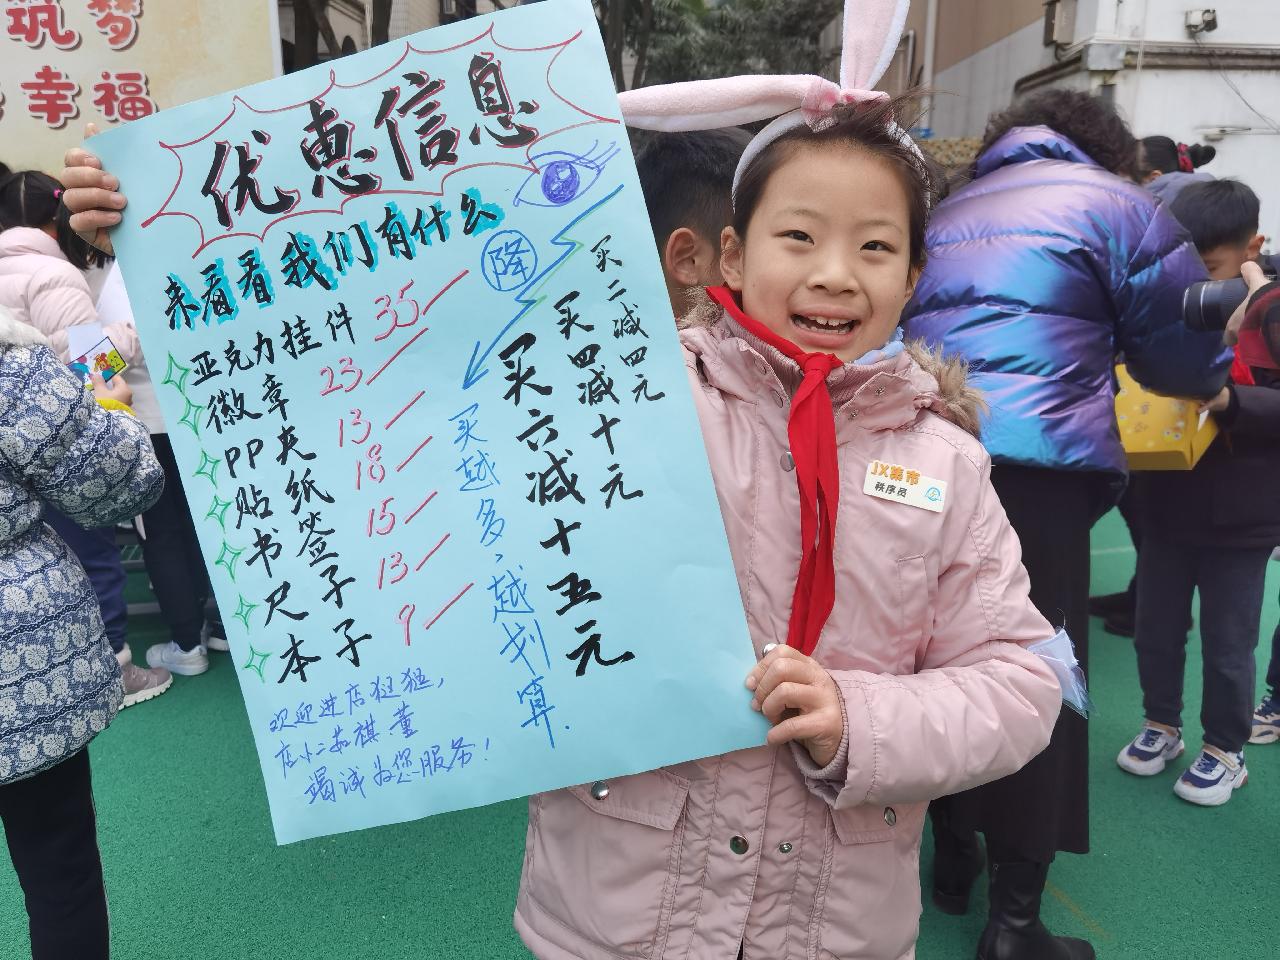 筑梦
幸福
优惠信息
来看看我们有什么
亚克力挂件 35
徽章 23
PP夹 13
贴纸 18
书签 15
尺子 13
本子 9
降
买二减四元
买四减十元
买六减十五元
买越多，越划算.
欢迎进店逛逛，
店小二茹棋萱
竭诚为您服务！
JX集市
秩序员